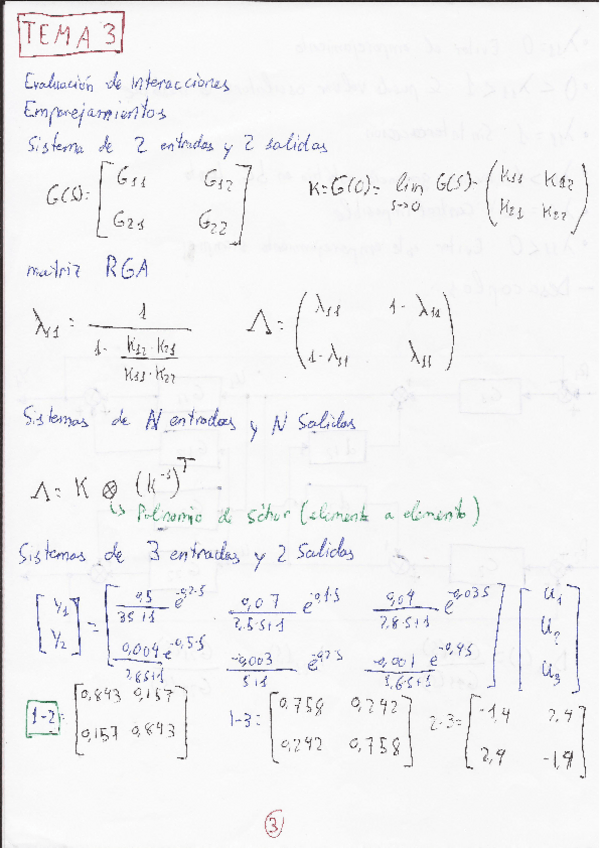 TEMA 3
Evaluación de interacciones
Emparejamientos
Sistema de 2 entradas y 2 salidas
G(s)= [G11 G12; G21 G22] K=G(0)= lim s→0 G(s)= (K11 K12; K21 K22)
matriz RGA
λ11 = 1 / (1 - (K12·K21)/(K11·K22)) Λ= (λ11 1-λ11; 1-λ11 λ11)
Sistemas de N entradas y N salidas
Λ= K ⊗ (K^-1)^T
↳ Polinomio de Schur (elemento a elemento)
Sistemas de 3 entradas y 2 salidas
[y1; y2] = [0,5/(3s+1) e^-0,2·s 0,07/(2,5·s+1) e^-0,1·s 0,04/(2,8·s+1) e^-0,03s; 0,004 e^-0,5·s -0,003/(s+1) e^-0,2·s -0,001 e^-0,4s/(1,6s+1)] [u1; u2; u3]
1-2 = [0,843 0,157; 0,157 0,843] 1-3= [0,758 0,242; 0,242 0,758] 2-3= [-1,4 2,4; 2,4 -1,4]
3